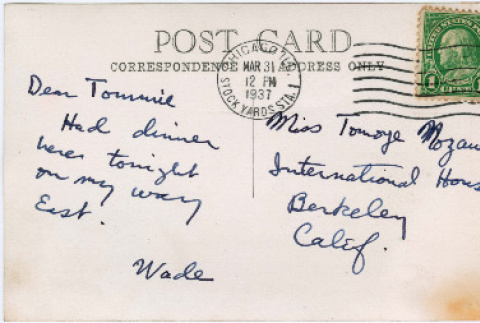 POST CARD
CORRESPONDENCE ADDRESS ONLY
CHICAGO, ILL.
MAR 31
12 PM
1937
STOCK YARDS STA.
UNITED STATES
1 1
Dear Tommie
Had dinner
here tonight
on my way
East.
Wade
Miss Tomoye Nozaw
International Hous
Berkeley
Calif.